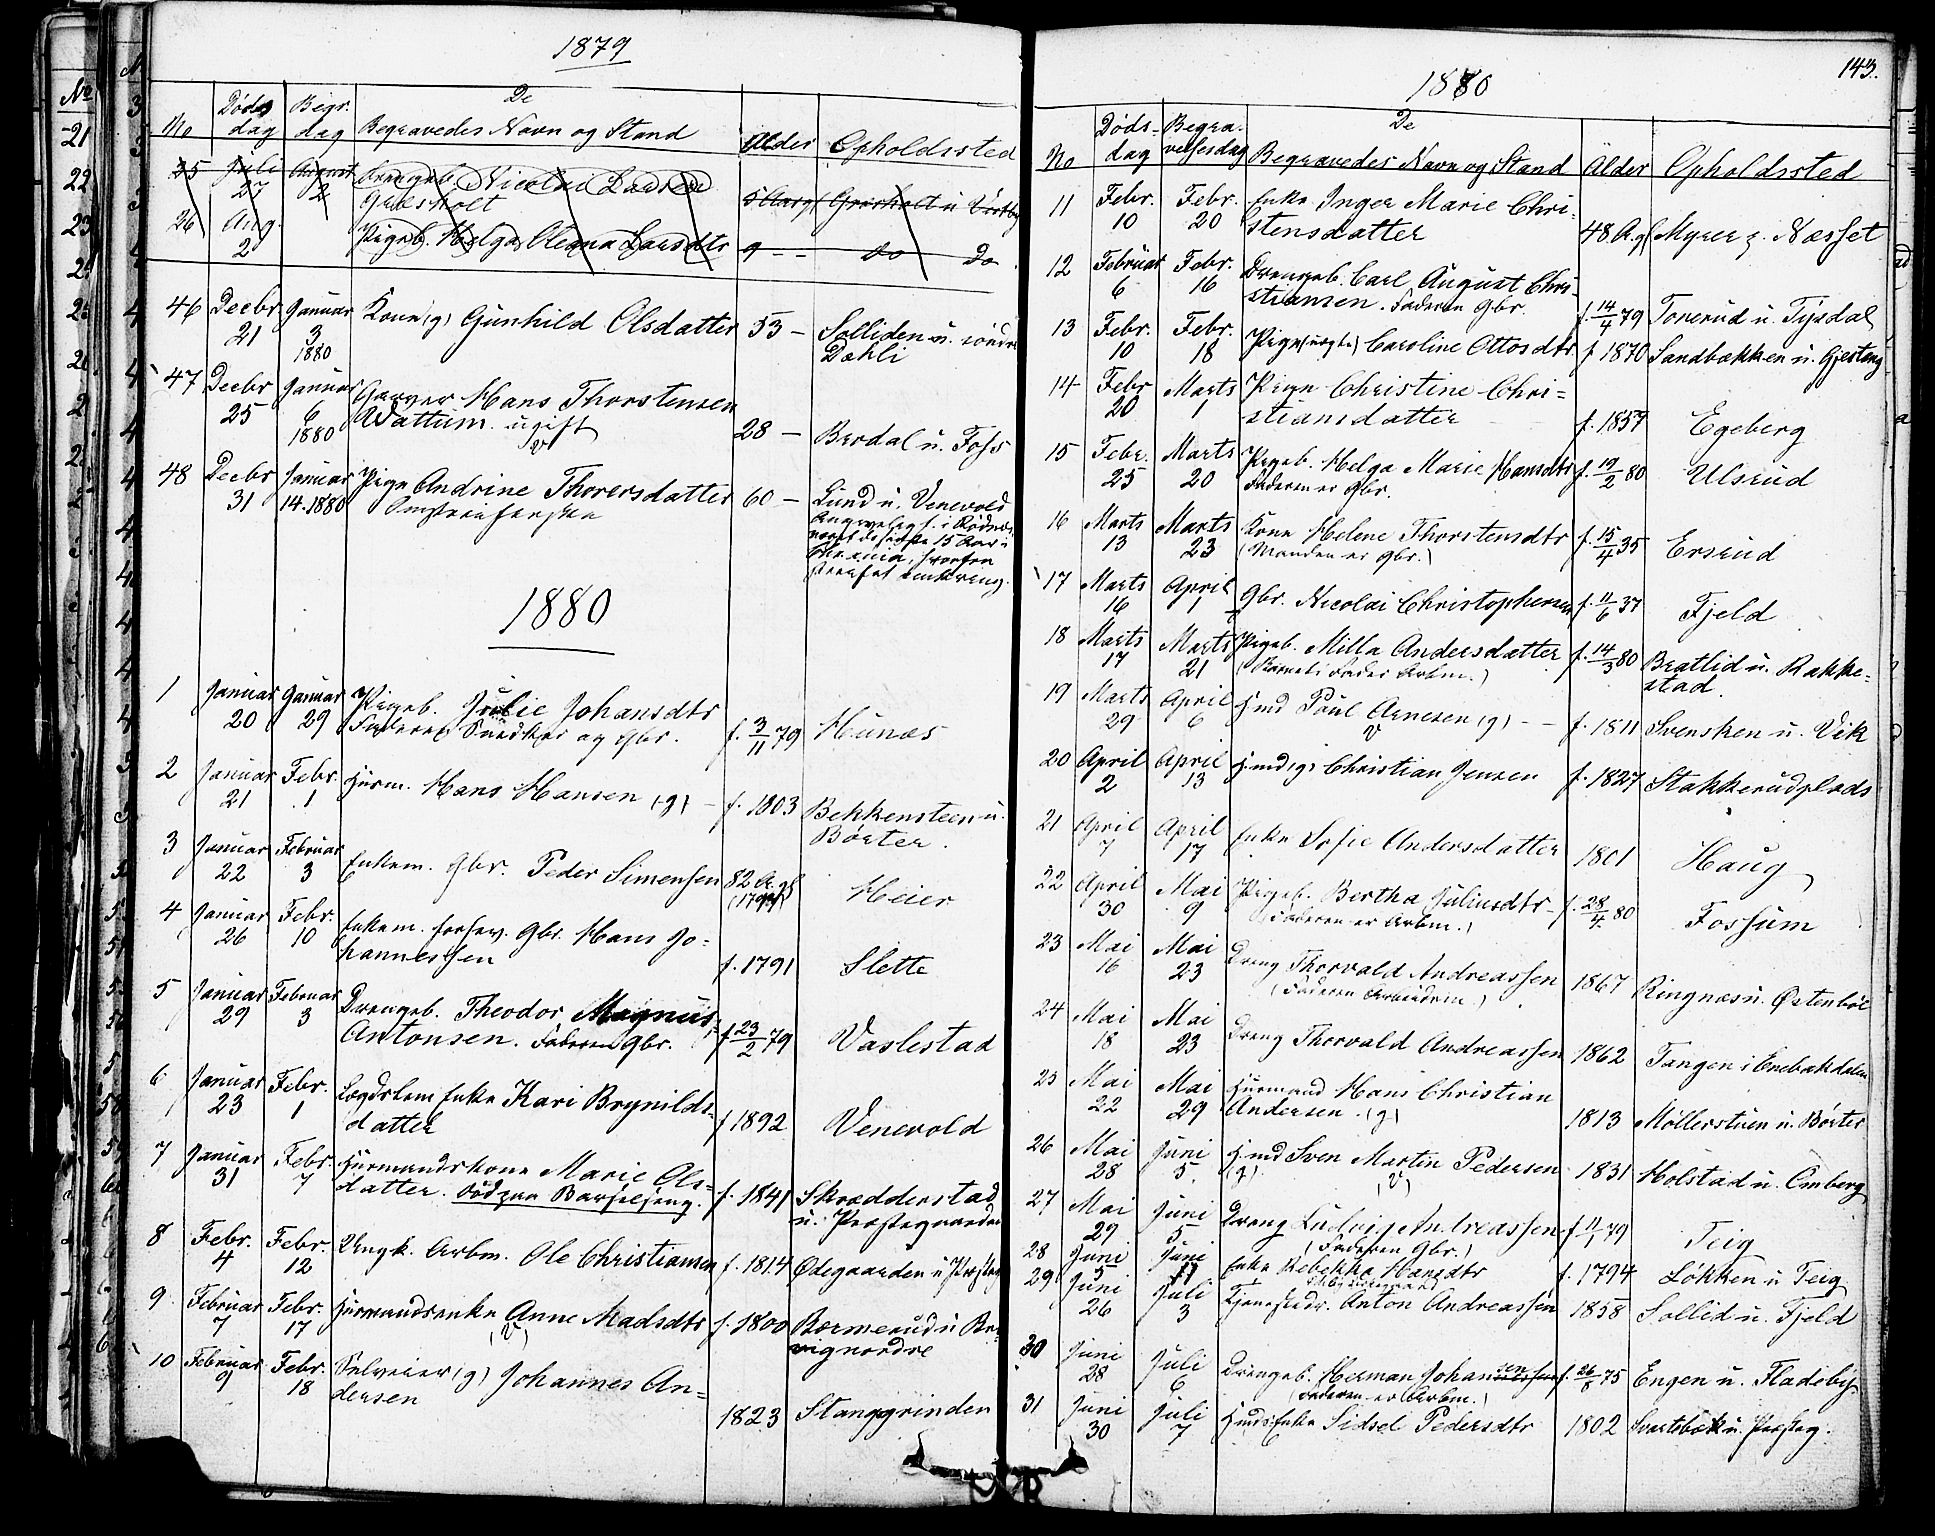 1879
No Døds dag Begr. dag De Begravedes Navn og Stand Alder Opholdssted
35 Juli 27 August 2 Drengeb. Nicolai Larsen
Græsholt 5 Aar gl Græsholt u Vestby
26 Aug. 2 Pigeb. Helga Oleana Larsdtr 9 -- do do
46 Decbr 21 Januar 3 1880 Kone (g) Gunhild Olsdatter 53 – Solliden u. søndre
Dæhli
47 Decbr 25 Januar 6 1880 Garver Hans Thorstensen
Wattum. ugift 28 – Brodal u. Foss
48 Decbr 31 Januar 14. 1880 Pige Andrine Thorersdatter 60 – Lund u. Venevold
1880
1 Januar 20 Januar 29 Pigeb. Julie Johansdtr
Faderen Snedker og Gbr. f. 3/11 79 Hunæs
2 Januar 21 Febr. 1 Husm. Hans Hansen (g) – f. 1803 Bekkensteen u.
Børter.
3 Januar 22 Februar 3 Enkem. Gbr. Peder Simensen 82 A. gl Heier
4 Januar 26 Febr. 10 Enkem. forhev. Gbr. Hans Jo-
hannessen f. 1791 Slette
5 Januar 29 Februar 3 Drengeb. Theodor Magnus
Antonsen. Faderen Gbr. f 23/2 79 Vaslestad
6 Januar 23 Febr. 1 Lægdslem Enke Kari Brynilds-
datter f 1892 Venevold
7 Januar 31 Febr. 7 Husmandskone Marie Ols-
datter. Død paa Barselseng. f. 1841 Skrædderstad
u. Præstegaarden
8 Febr. 4 Febr. 12 Ungk. Arbm. Ole Christiansen f. 1814 Ødegaarden u Præsteg
9 Februar 7 Febr. 17 Husmandsenke Anne Madsdtr f. 1800 Bærmerud u Be-
(V)
10 Februar 9 Febr. 18 Selveier (g) Johannes An-
dersen 1823 Stanggrinden
143.
1880
No Døds- dag Begra- velsesdag De Begravedes Navn og Stand Alder Opholdssted
11 Febr. 10 Febr. 20 Enke Inger Marie Chri-
stensdatter 48 A. gl Myrer g. Næsset
12 Februar 6 Febr. 16 Drengeb. Carl August Chri-
stiansen. Faderen Gbr. f. 14/4 79 Tonerud u. Tysdal
13 Febr. 10 Febr. 18 Pige (uægte) Caroline Ottosdtr f 1870 Sandbækken u. Gjesteng
14 Febr 20 Marts 1 Pige Christine Chri-
stiansdatter f. 1857 Egeberg
15 Febr. 25 Marts 20 Pigeb. Helga Marie Hansdtr f. 19/2 80 Ulsrud
Faderen er Gbr.
16 Marts 13 Marts 23 Kone Helene Thorstensdtr f. 15/4 35 Ersrud
(Manden er Gbr.)
17 Marts 16 April 1 Gbr. Nicolai Christophersen f. 11/6 37 Fjeld
18 Marts 17 Marts 21 Pigeb. Milla Andersdatter f. 14/3 80 Bratlid u. Rakke-
(Barnets Fader Arbm.) stad.
19 Marts 29 April 6 Hmd Poul Arnesen (g) -- f. 1811 Svensken u. Vik
V
20 April 2 April 13 Hmd (g) Christian Jensen f. 1827 Stakkerudplads
21 April 7 April 17 Enke Sofie Andersdatter 1801 Haug
22 April 30 Mai 9 Pigeb. Bertha Juliusdtr f. 28/4 80 Fossum
(Faderen er Arbm.)
23 Mai 16 Mai 23 Dreng Thorvald Andreassen 1867 Ringnæs u. Østenbøl
24 Mai 18 Mai 23 Dreng Thorvald Andreassen 1862 Tangen i Enebakdalen
25 Mai 22 Mai 29 Husmand Hans Christian
Andersen. (g) 1813 Møllerstuen u. Børter
26 Mai 28 Juni 5. Hmd Sven Martin Pedersen 1831 Holstad u. Omberg
(g) (V)
27 Mai 29 Juni 5 Dreng Ludvig Andreassen f 11/1 79 Teig
(Faderen Gbr.)
28 Juni 5 Juni 11 Enke Rebekka Hansdtr f. 1794 Løkken u Teig
29 Juni 26 Juli 3 Tjenestedr. Anton Andreassen 1858 Sollid u. Fjeld
30 Juni 28 Juli 6 Drengeb. Herman Johansen f. 26/8 75 Engen u. Fladeby
(Faderen er Arbm.)
31 Juni 30 Juli 7 Hmds Enke Sidsel Pedersdtr 1802 Svartsbæk u. Præsteg.